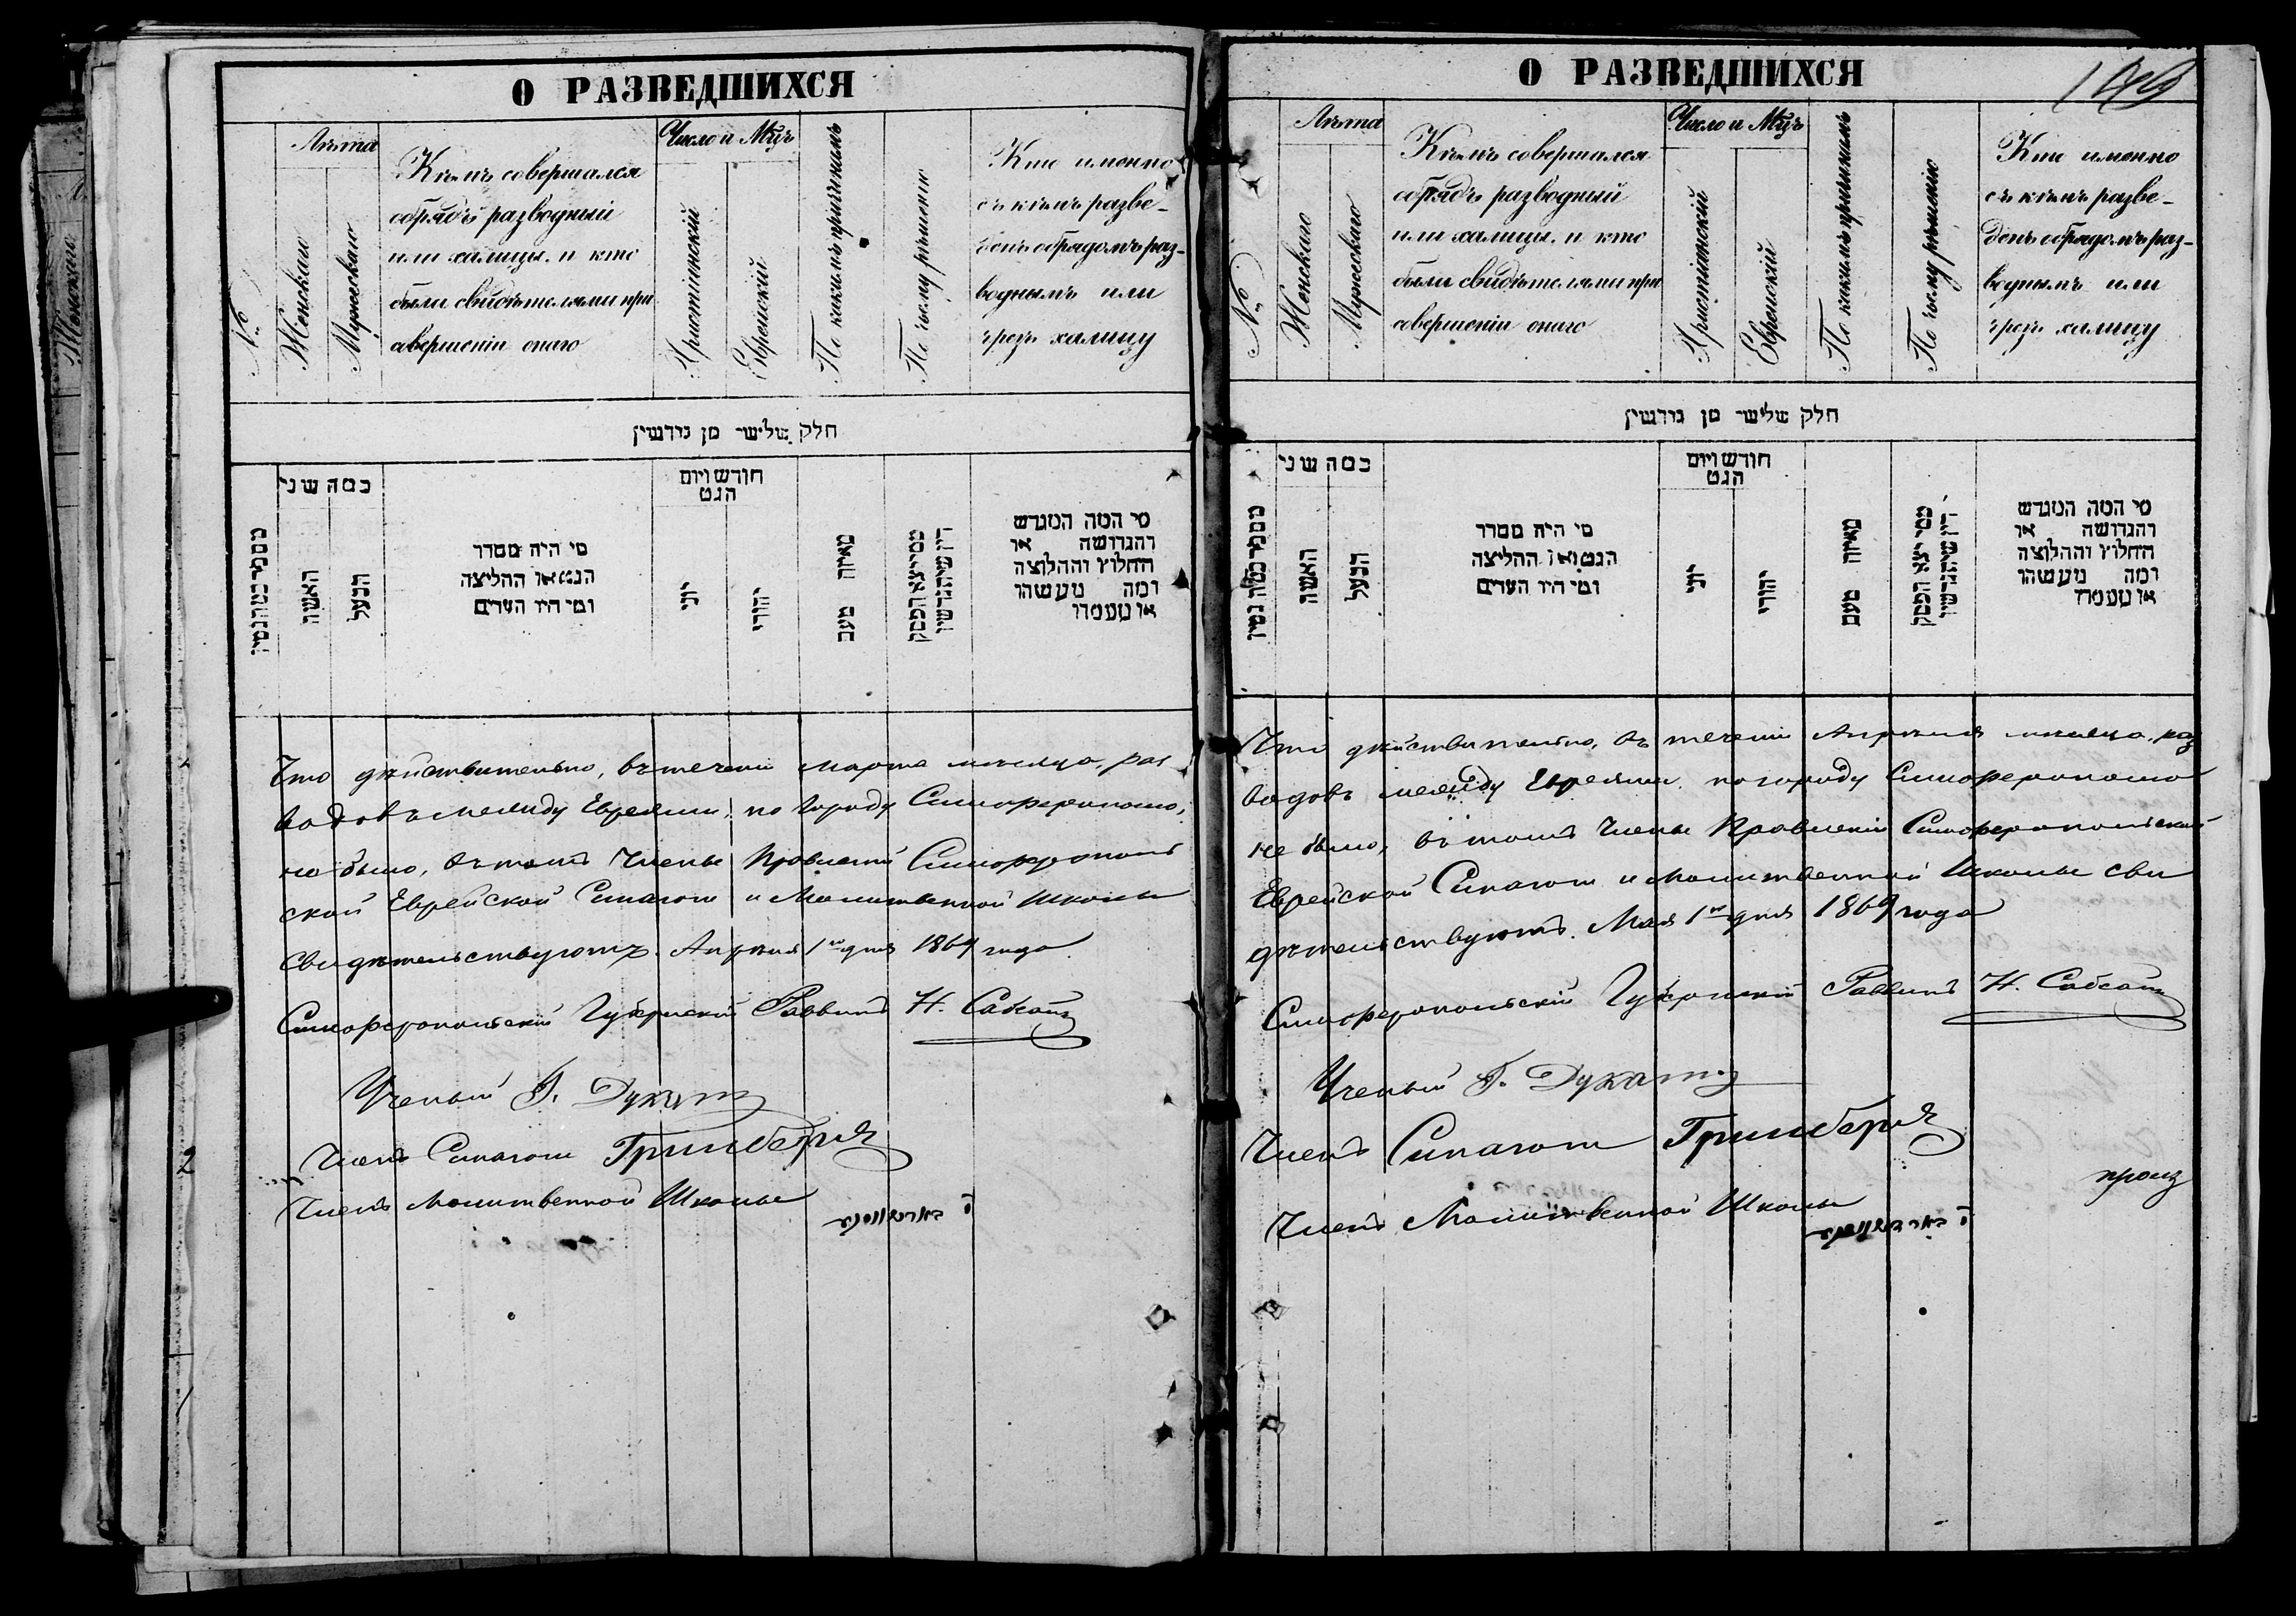 О РАЗВЕДШИХСЯ
№
Лѣта
Женскаго
Мужескаго
Кѣмъ совершался
обрядъ разводный
или халицы, и кто
были свидѣтелями при
совершеніи онаго
Число и Мцъ
Христіянскій
Еврейскій
По какимъ причинамъ
По чьему рѣшенію
Кто именно
съ кѣмъ разве-
денъ обрядомъ раз-
воднымъ или
чрезъ халицу
חלק שלישי מן גירושין
כמה שני
האשה
הבעל
מי היה מסדר
הגט או החליצה
ומי היו העדים
חודש ויום
הגט
יוני
יהודי
מאיזה טעם
ממי יצא הפסק
דין שיתגרשו
מי המה המגרש
והגרושה או
החלוץ והחלוצה
ומה מעשהו
או מעמדו
Что дѣйствительно, въ теченіи Марта мѣсяца, раз
водовъ между Евреями, по городу Симферополю,
не было, въ томъ Члены Правленій Симферополь
ской Еврейской Синагоги и Молитвенной Школы
свидѣтельствуютъ. Апрѣля 1го дня 1869 года
Симферопольскій Губернскій Раввинъ Н. Сабсай
Ученый Г. Дукатъ
Членъ Синагоги Гринбергъ
Членъ Молитвенной Школы
2
О РАЗВЕДШИХСЯ
№
Лѣта
Женскаго
Мужескаго
Кѣмъ совершался
обрядъ разводный
или халицы, и кто
были свидѣтелями при
совершеніи онаго
Число и Мцъ
Христіянскій
Еврейскій
По какимъ причинамъ
По чьему рѣшенію
Кто именно
съ кѣмъ разве-
денъ обрядомъ раз-
воднымъ или
чрезъ халицу
חלק שלישי מן גירושין
כמה שני
האשה
הבעל
מי היה מסדר
הגט או החליצה
ומי היו העדים
חודש ויום
הגט
יוני
יהודי
מאיזה טעם
ממי יצא הפסק
דין שיתגרשו
מי המה המגרש
והגרושה או
החלוץ והחלוצה
ומה מעשהו
או מעמדו
Что дѣйствительно, въ теченіи Апрѣля мѣсяца, раз
водовъ между Евреями по городу Симферополю
не было, въ томъ Члены Правленій Симферопольской
Еврейской Синагоги и Молитвенной Школы сви
дѣтельствуютъ. Мая 1го дня 1869 года
Симферопольскій Губернскій Раввинъ Н. Сабсай
Ученый Г. Дукатъ
Членъ Синагоги Гринбергъ
Членъ Молитвенной Школы